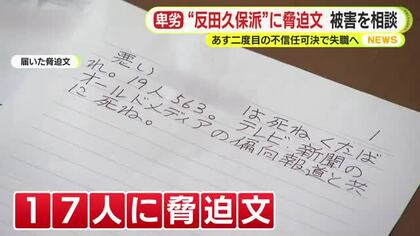 卑劣 “反田久保派”に脅迫文 被害を相談
あす二度目の不信任可決で失職へ NEWS
届いた脅迫文
1
悪い は死ね くたば
れ。19人563。テレビ・新聞の
オールドメディアの偏向報道と共
に死ね。
17人に脅迫文